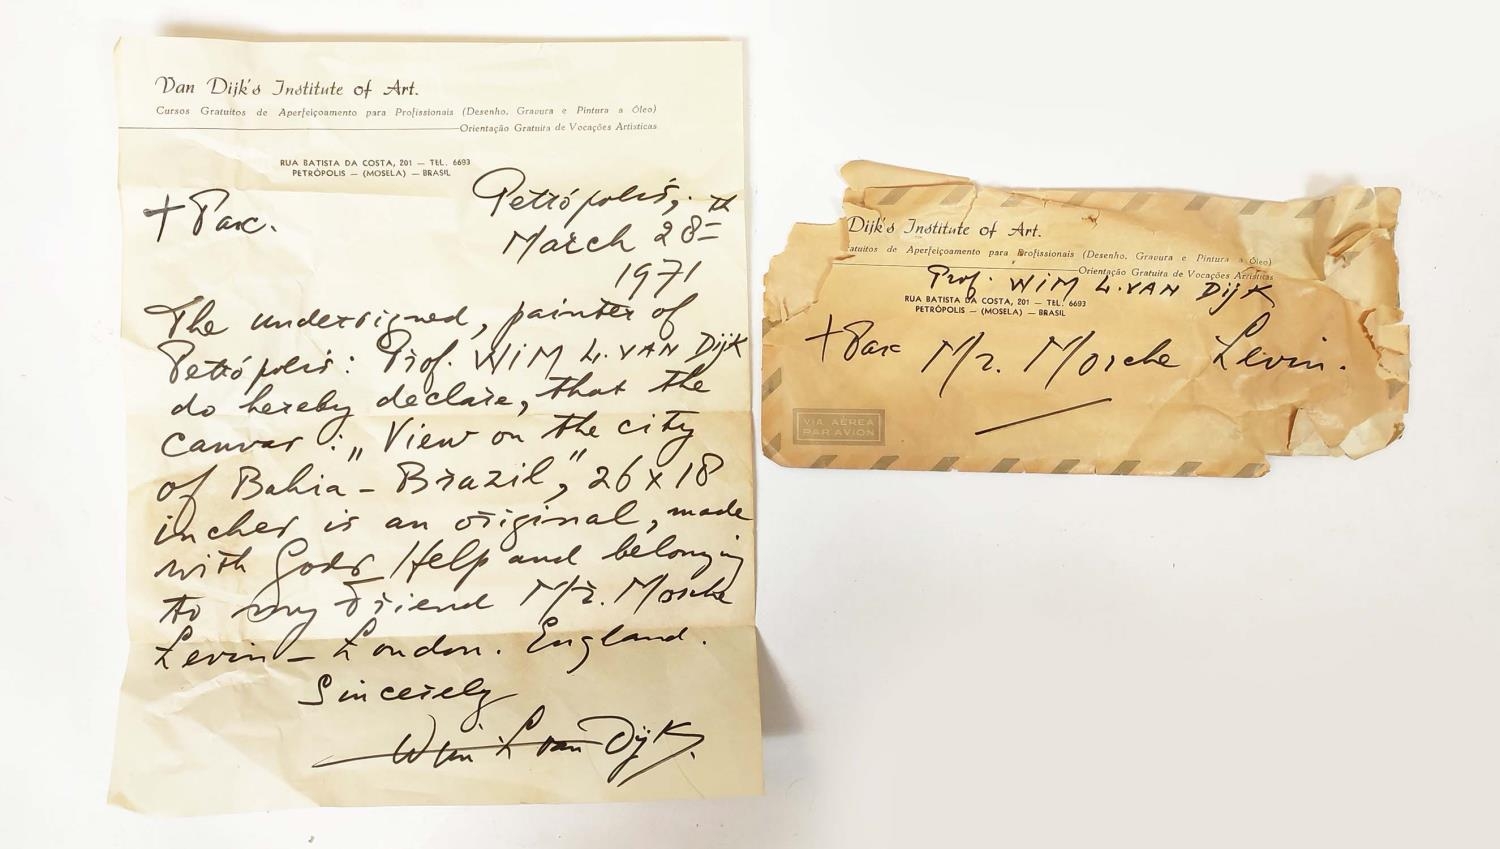 Van Dijk's Institute of Art.
Cursos Gratuitos de Aperfeiçoamento para Profissionais (Desenho, Gravura e Pintura a Óleo)
Orientação Gratuita de Vocações Artísticas
RUA BATISTA DA COSTA, 201 — TEL. 6693
PETRÓPOLIS — (MOSELA) — BRASIL
Petrópolis,
+ Pax.
March 28th
1971
The undersigned, painter of
Petrópolis: Prof. WIM L. VAN Dijk
do hereby declare, that the
canvas: „View on the city
of Bahia – Brazil", 26 x 18
inches is an original, made
with Gods Help and belonging
to my Friend Mr. Morche
Levin – London. England.
Sincerely
Wim L van Dijk
Dijk's Institute of Art.
atuitos de Aperfeiçoamento para Profissionais (Desenho, Gravura e Pintura a Óleo)
Orientação Gratuita de Vocações Artísticas
Prof. WIM L. VAN Dijk
RUA BATISTA DA COSTA, 201 — TEL. 6693
PETRÓPOLIS — (MOSELA) — BRASIL
+ Pax Mr. Morche Levin.
VIA AÉREA
PAR AVION